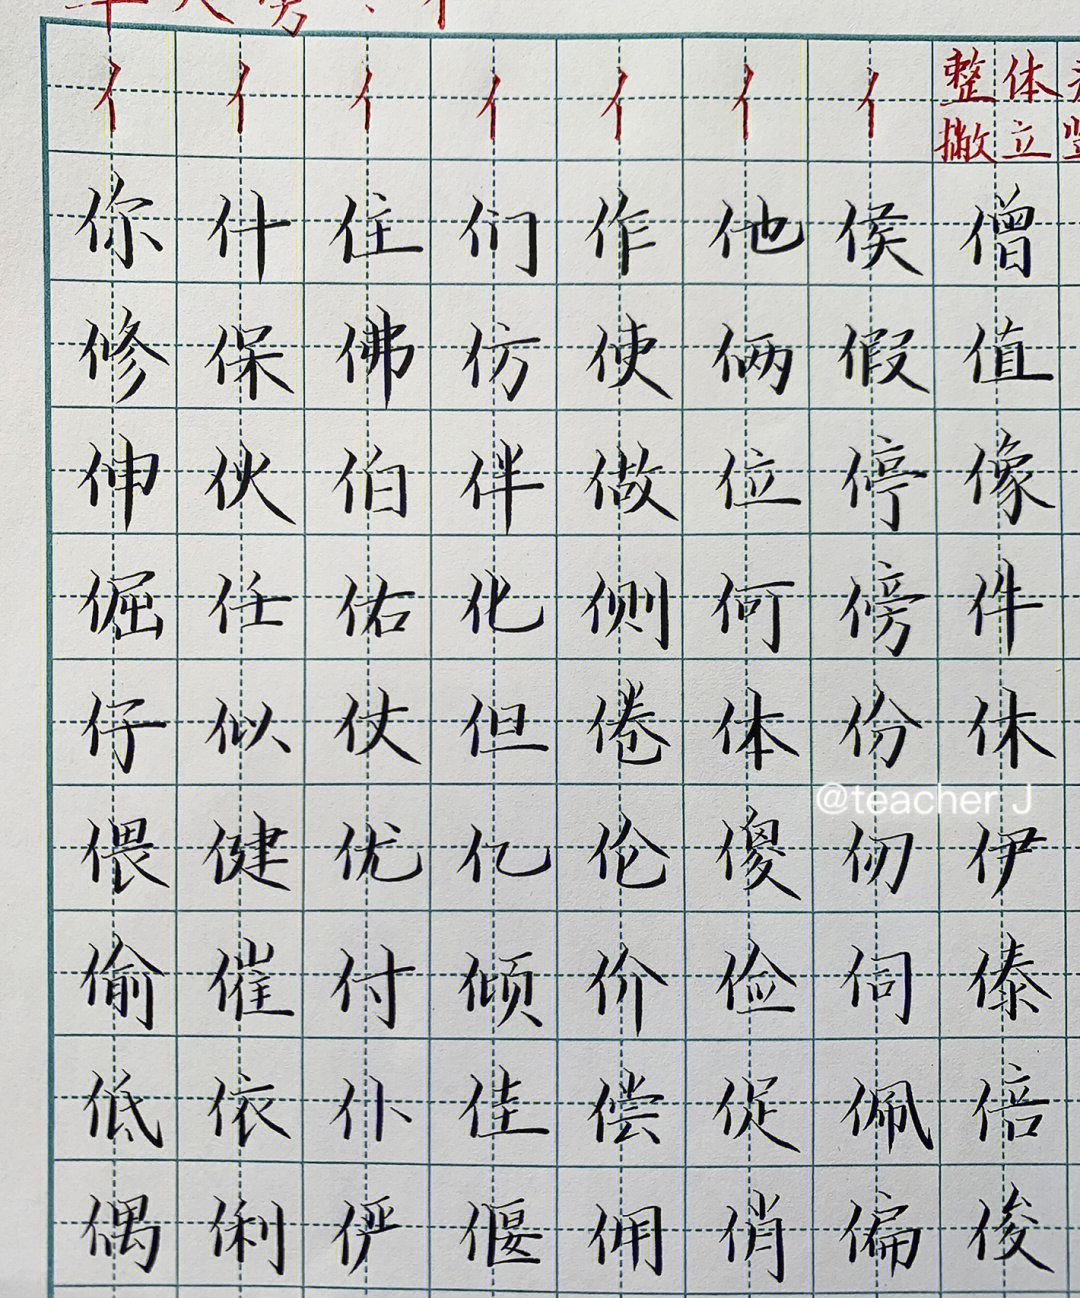 单人旁：亻
亻 亻 亻 亻 亻 亻 亻 整体
撇立
你 什 住 们 作 他 侯 僧
修 保 佛 仿 使 俩 假 值
伸 伙 伯 伴 做 位 停 像
倔 任 佑 化 侧 何 傍 件
仔 似 仗 但 倦 体 份 休
@teacher J
偎 健 优 亿 伦 傻 仞 伊
偷 催 付 倾 价 俭 伺 傣
低 依 仆 佳 偿 促 佩 倍
偶 俐 俨 偃 佣 俏 偏 俊